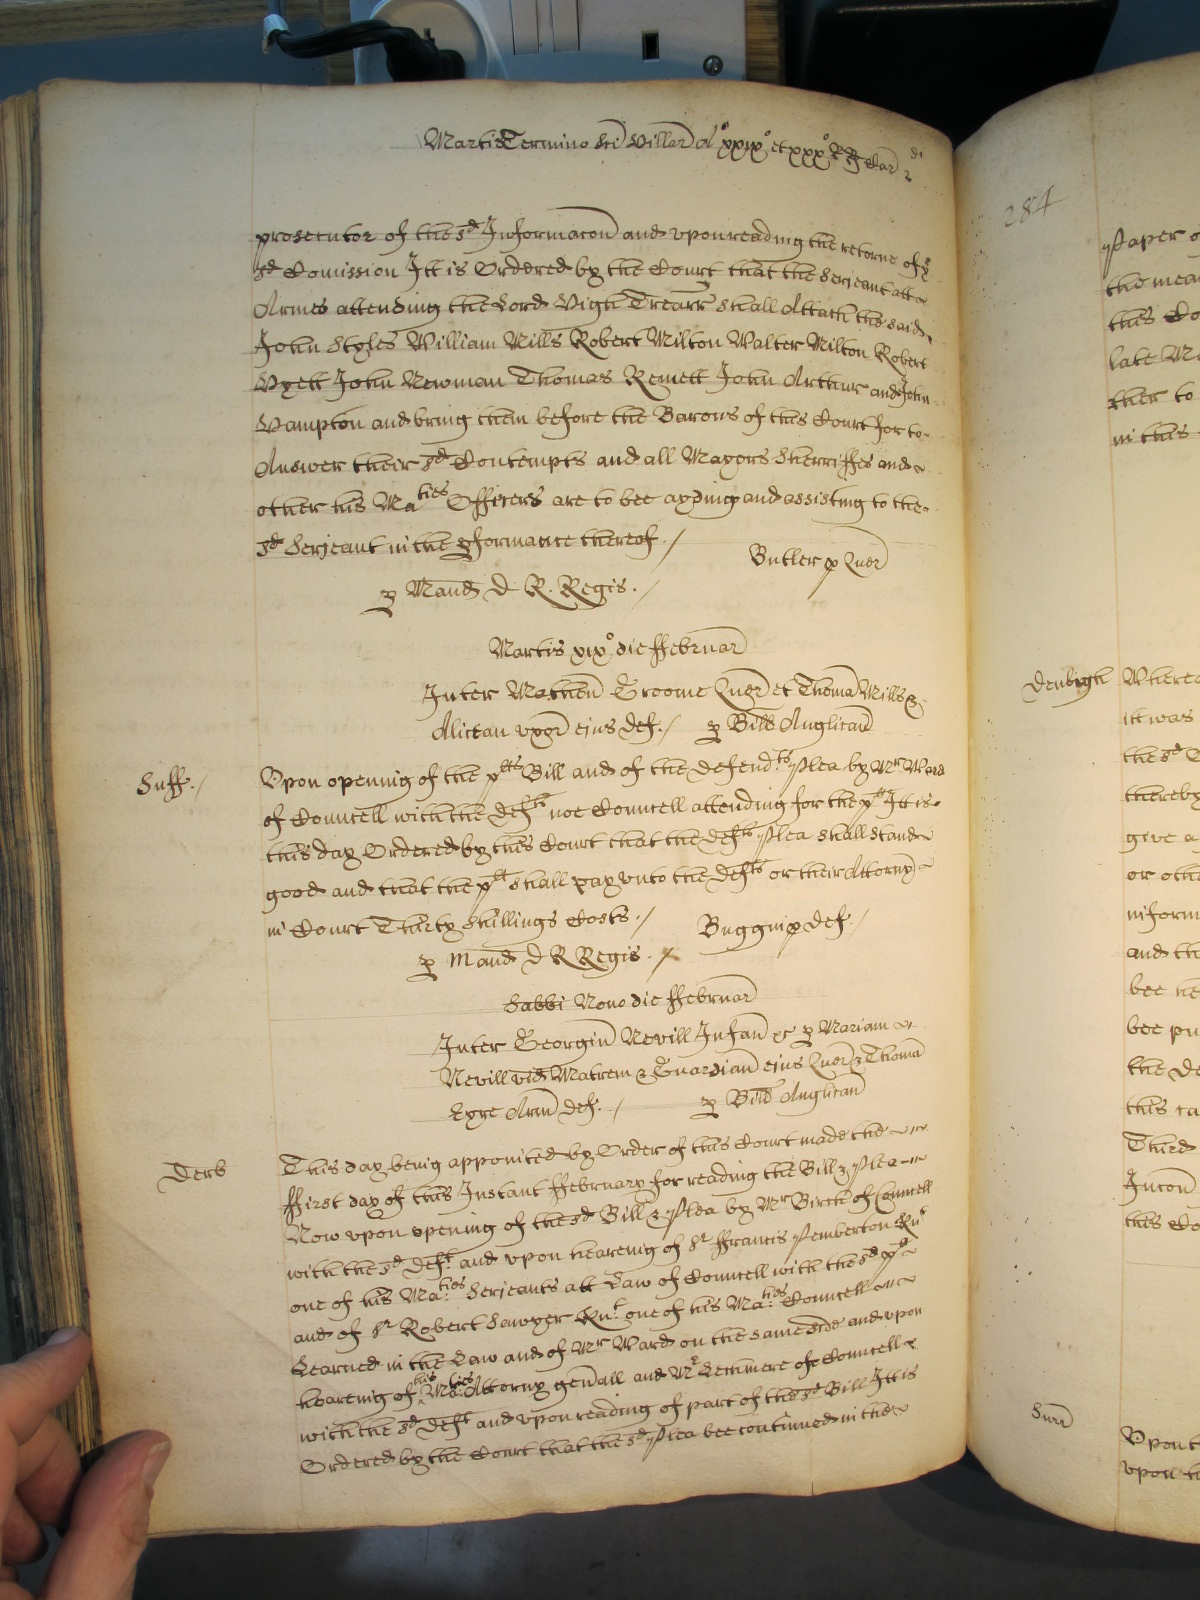 Martis Termino Sci Hillar A° xxix° et xxx° RRs Car 2 di
prosecutor of the sd Informacon and upon reading the retorne of ye
sd Comission Itt is Ordered by the Court that the Serjeant att
Armes attending the Lord High Trearr shall Attach the said
John Styles William Mills Robert Milton Walter Milton Robert
Hyett John Newman Thomas Remett John Arthur and John
Hampton and bring them before the Barons of this Court for to
Answer their sd Contempts and all Mayors Sherriffes and
other his Maties Officers are to bee ayding and assisting to the
sd Serjeant in the pformance thereof /
Butler p Quer
p Mand D R. Regis. /
Martis xix° die ffebruar
Inter Matheu Groome Quer et Thoma Mills &
Aliciam uxor ejus def. / p Bill Anglican
Suff. /
Upon opening of the plts Bill and of the defendts Plea by Mr Ward
of Councell with the Defts noe Councell attending for the plt Itt is
this day Ordered by this Court that the Defts Plea shall stand
good and that the plt shall pay unto the Defts or their Attorny
in Court Thirty shillings Costs. /
Buggin p Def. /
p Mand D R Regis. /
Sabbi Nono die ffebruar
Inter Georgiu Nevill Infan &c p Mariam
Nevill vid Matrem & Guardian ejus Quer & Thoma
Eyre Arm def. / p Bill Anglican
Derb
This day being appointed by Order of this Court made the
ffirst day of this Instant ffebruary for reading the Bill & Plea
Now upon opening of the sd Bill & Plea by Mr Birch of Councell
with the sd Deft. and upon hearing of Sr ffrancis Pemberton Knt
one of his Maties Serjeants att Law of Councell with the sd plt
and of Sr Robert Sawyer Knt one of his Maties Councell
Learned in the Law and of Mr Ward on the same side and upon
hearing of his Maties Attorny genall and Mr Lechmere of Councell
with the sd Deft and upon reading of part of the sd Bill Itt is
Ordered by the Court that the sd Plea bee continued in the
284
Paper o
the mean
this Co
late M
ther to
in this
Denbigh
Wherea
itt was
the sd
thereby
give a
or oth
inform
and th
bee he
bee pu
the De
this ca
Third
Incon
this Co
Surr
Upon t
upon th